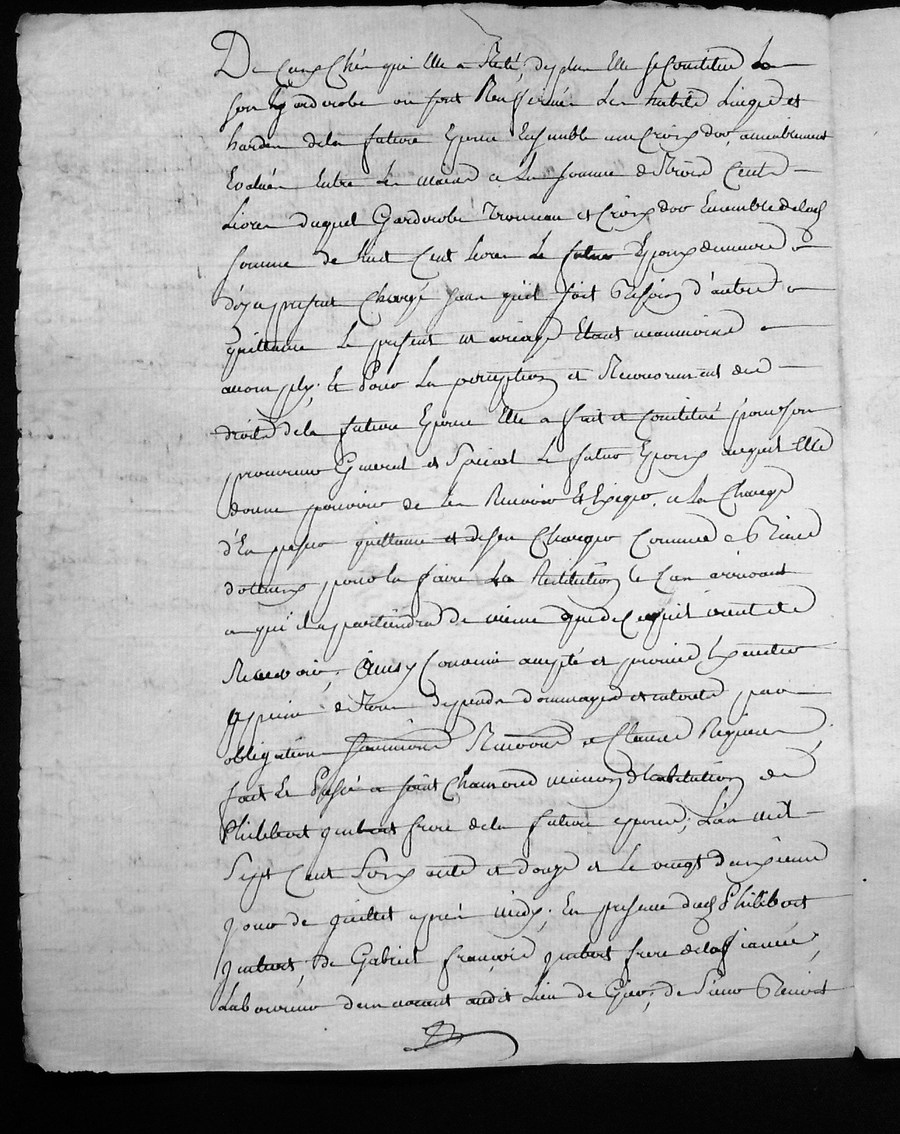 De Ceux Chen quelle a Resté, de plus Elle se Constitue
son garderobe ou sont Renfermés Les habits Linges et
hardes dela future Epouse Ensemble une Croix dor, amiablement
Evalués Entre Les mains a La somme de Trois Cents
Livres duquel Garderobe Trousseau et Croix dor Ensemble de lad
somme de huit Cent Livres Le futur Epoux demeure
déja present Chargé sans quil soit Besoin d'autre
quittance Le present mariage Etant neanmoins
acomply; Et Pour La perception et Recouvrement des
droits dela future Epouse Elle a fait et Constitué pour son
procureur General et Special Le futur Epoux auquel Elle
donne pouvoir de Les Recevoir Et Exiger, a La Charge
d'En passer quittance et descharge Comme de Biens
dotaux pour la faire La Restitution le Cas arrivant
a qui il appartiendra de meme que de Ce quil vient de
Recevoir, Ainsy Convenu accepté et promis Executer
a peine de tous depends dommages et interets par
obligation soumissions Renonciations et Clauses Requises
fait Et Passé a saint Chamond maison d'habitation de
Philibert quibert frere dela future epouse; L'an mil
Sept Cent Soixante et douze et Le vingt deuxieme
Jour de Juillet après midy; En presence dud Philibert
quibert, de Gabriel françois quibert frere dela fiancée,
Laboureur demeurant audit Lieu de , de Sieur Benoit